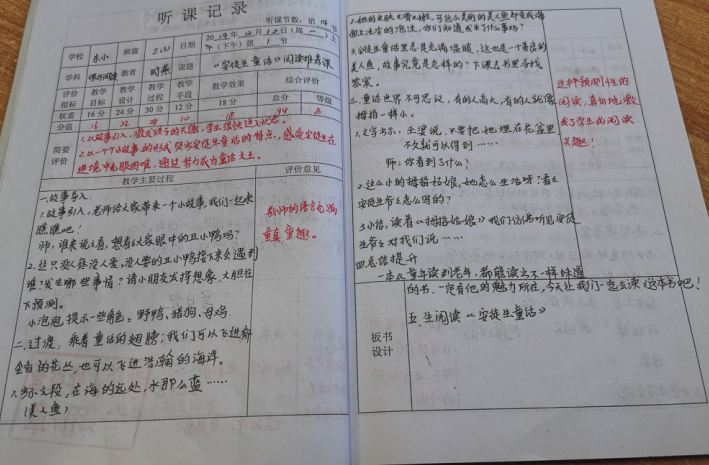 听课记录
听课节数：第 节
学校 东小 班级 三(5) 日期 2019年12月12日(周一)上
午(下午)第1节
学科 课外阅读 教者 周燕 课题 《安徒生童话》阅读推荐课
评价指标 教学目标 教学设计 教学过程 教学手段 教学效果 综合评价
权重 16分 24分 30分 12分 18分 总分 等级
分值 16 22 10 18 94 A
简要评价
1.以故事引入，激发读书的兴趣，学生很快进入状态。
2.以一个个小故事的形式突出安徒生童话的特点，感受安徒生在
逆境中克服困难，通过努力成为童话大王。
教学主要过程 评价意见
一.故事导入
1.故事引入，老师给大家带来一个小故事，我们一起来
瞧瞧吧！
师：谁来说说看，想看大家眼中的丑小鸭吗？
2.这只没人疼没人爱，没人要的丑小鸭接下来会遇到
谁？发生哪些事情？请小朋友发挥想象，大胆往
下预测。
小泡泡，提示一些角色。野鸭、猎狗、母鸡
二.过渡：乘着童话的翅膀，我们可以飞进
的花丛，也可以飞进浩瀚的海洋。
1.出示文段，在海的远处，水那么蓝……
(美人鱼)
教师的语言充满
童真童趣。
海上太阳的泡沫，你们知道发生了什么事吗？
3.安徒生童话里总是充满温暖，这也是一个善良的
美人鱼，故事究竟是怎样的？下课去书里寻找
答案。
三.童话世界不可思议，有的人高大，有的人就像
拇指一样小。
1.文字出示，巫婆说，只要把她埋在花盆里
不久就可以得到……
师：你看到了什么？
2.这么小的拇指姑娘，她怎么生活呀？看看
安徒生爷爷怎么写的？
3.小结，读着《拇指姑娘》我们仿佛听见安徒
生爷爷对我们说……
四.总结提升
一本从童年读到老年，都能读出不一样味道
的书，一定有他的魅力所在，今天让我们一起去读《这本书吧！
五.生阅读《安徒生童话》
这种预测性的
阅读，真切地激
发了学生的阅读
兴趣！
板书设计